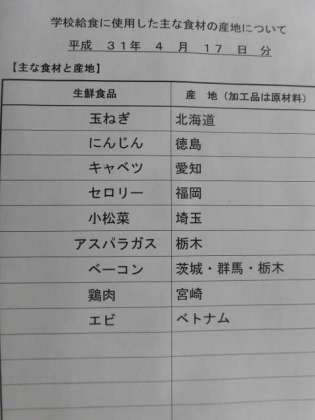 学校給食に使用した主な食材の産地について
平成 31年 4 月 17 日 分
【主な食材と産地】
生鮮食品 産 地（加工品は原材料）
玉ねぎ 北海道
にんじん 徳島
キャベツ 愛知
セロリー 福岡
小松菜 埼玉
アスパラガス 栃木
ベーコン 茨城・群馬・栃木
鶏肉 宮崎
エビ ベトナム